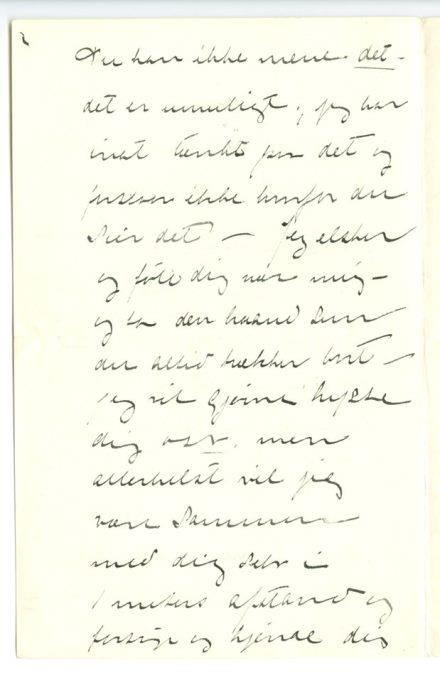 Du kan ikke mene det -
det er umuligt, jeg har
inat tænkt paa det og
forstaar ikke hvorfor du
siger det - jeg elsker
og føle dig nær mig -
og ta den haand som
du altid trækker bort -
jeg vil gjerne kysse
dig ost, men
allerhelst vil jeg
være sammen
med dig selv i
1 meters afstand og
forsøge og kjende dig